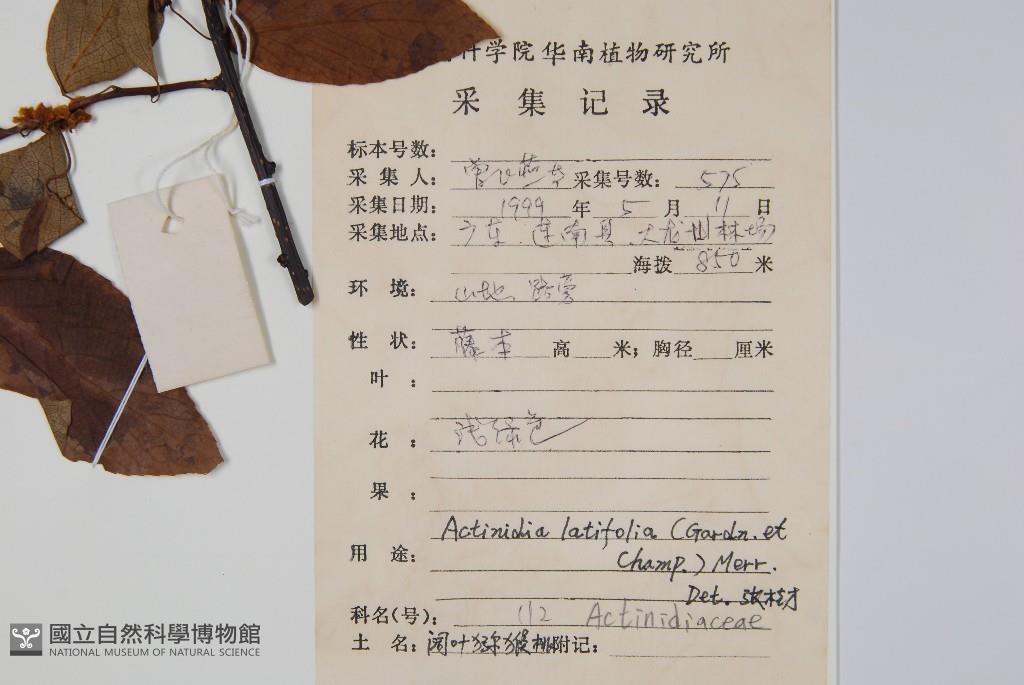 科学院华南植物研究所
采集记录
标本号数:
采集人: 采集号数: 575
采集日期: 1999 年 5 月 11 日
采集地点: 广东 连南县 大龙山林场
海拨 850 米
环境: 山地 路旁
性状: 藤本 高 米; 胸径 厘米
叶:
花: 浅绿色
果:
Actinidia latifolia (Gardn. et
Champ.) Merr.
用途:
Det.
科名(号): 112 Actinidiaceae
土名: 阔叶猕猴桃 附记:
國立自然科學博物館
NATIONAL MUSEUM OF NATURAL SCIENCE